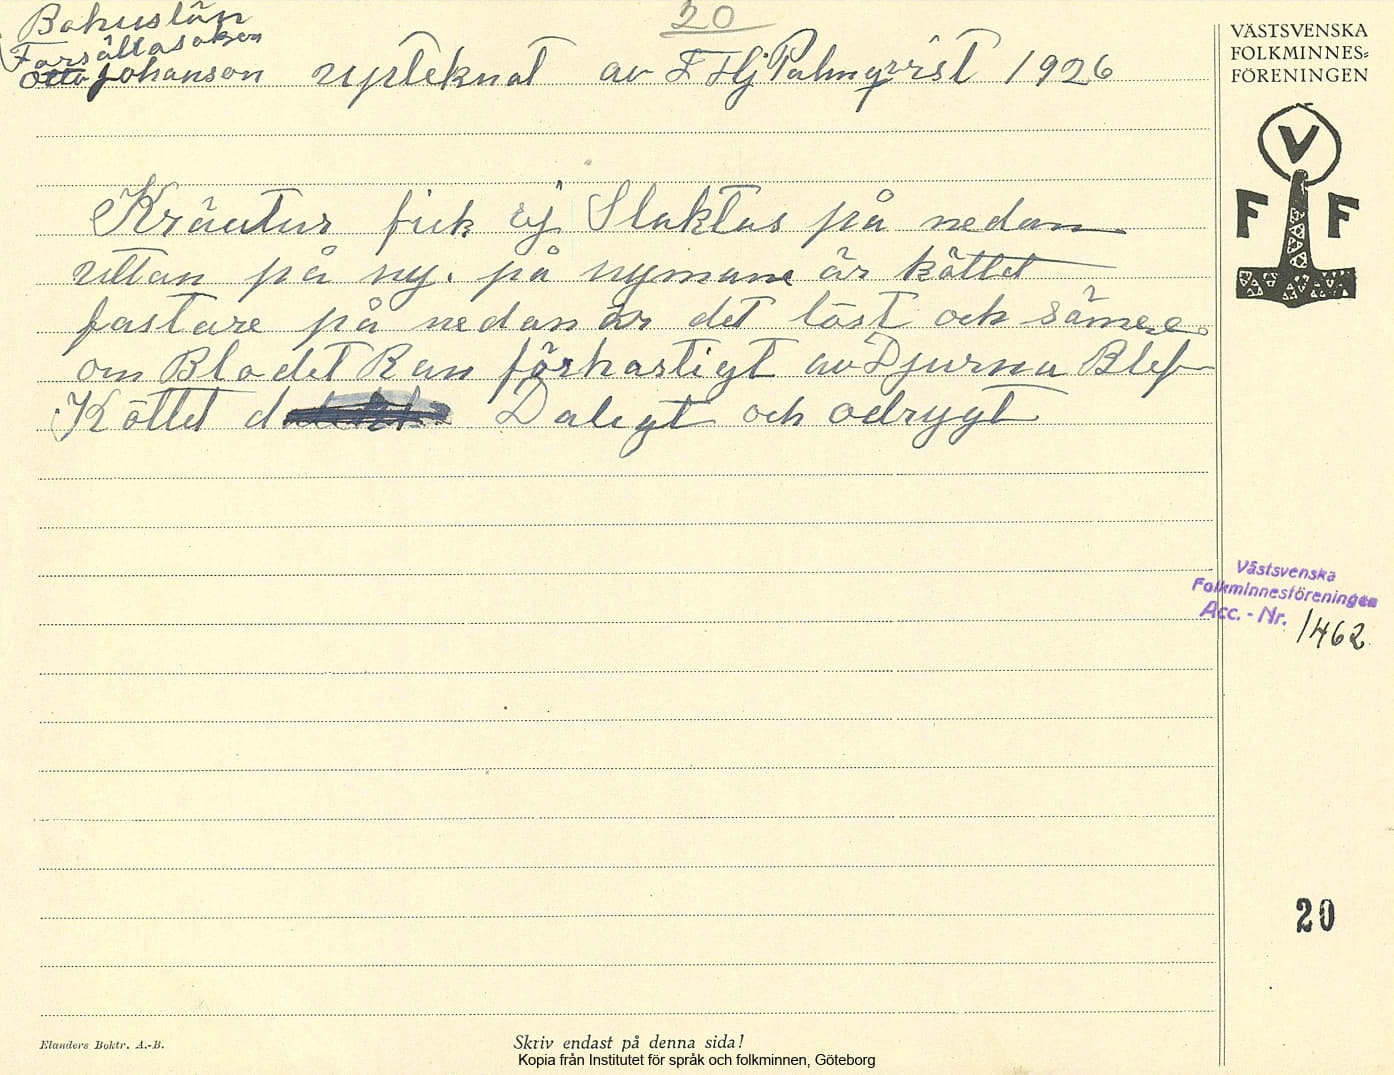 20
Bohuslän
Forsällasoken
Otto Johanson upteknat av F Hj Palmqvist 1926
Kräutur fick ej Slaktas på nedan
uttan på ny. på nymane är köttet
fastare på nedan är det löst och sämere
om Blodet Ran förhastigt av Djurna Blef
Köttet d Daligt och odrygt
VÄSTSVENSKA
FOLKMINNES=
FÖRENINGEN
V
F F
Västsvenska
Folkminnesföreningen
Acc. - Nr. 1462
20
Elanders Boktr. A.-B.
Skriv endast på denna sida!
Kopia från Institutet för språk och folkminnen, Göteborg